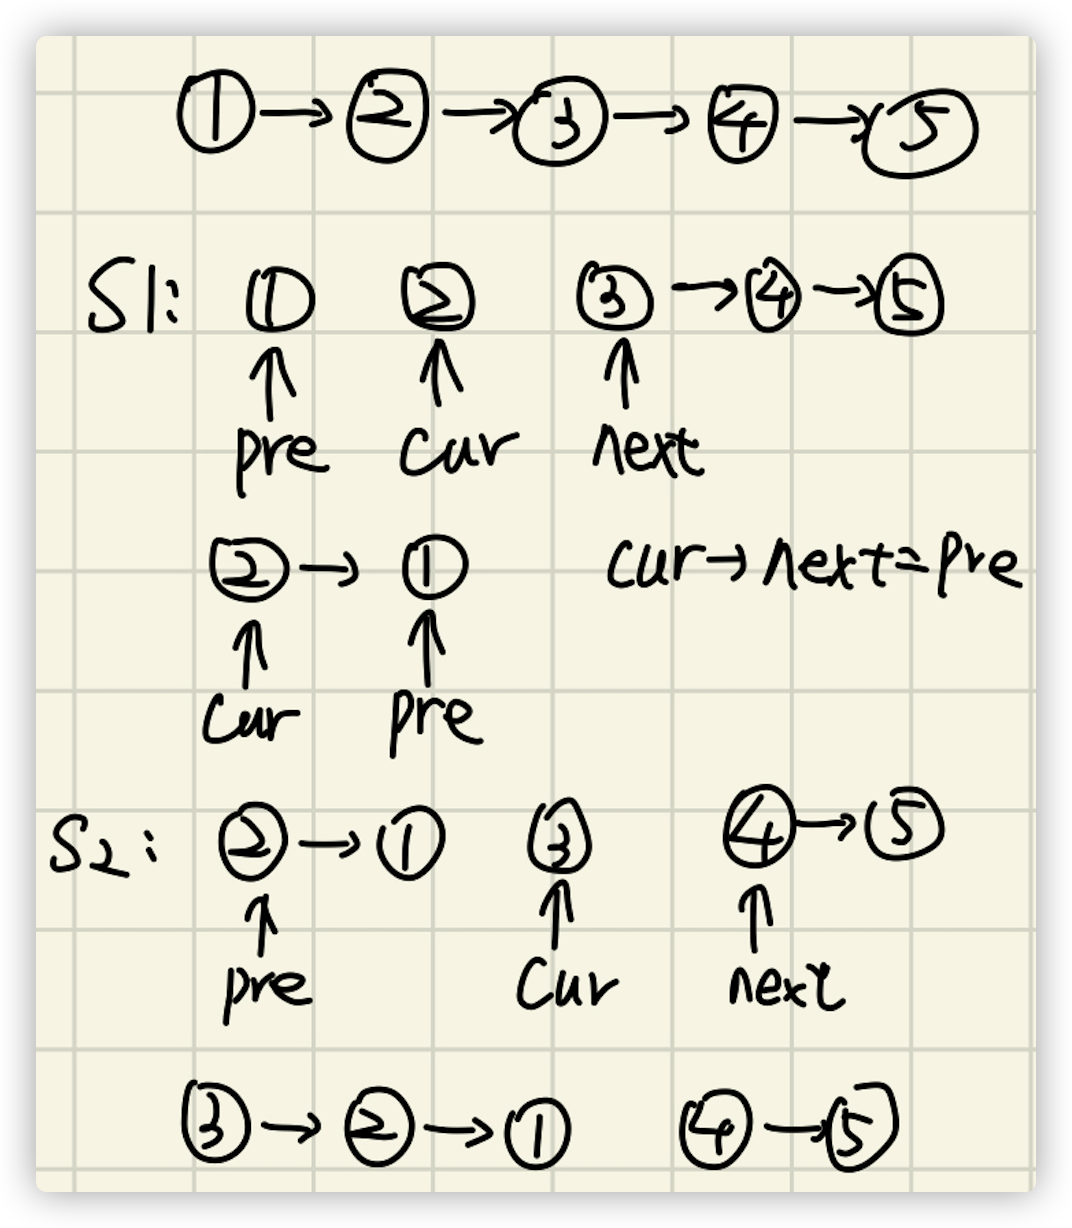 ① → ② → ③ → ④ → ⑤
S1: ① ② ③ → ④ → ⑤
↑ ↑ ↑
pre cur next
② → ① cur → next = pre
↑ ↑
cur pre
S2: ② → ① ③ ④ → ⑤
↑ ↑ ↑
pre cur next
③ → ② → ① ④ → ⑤